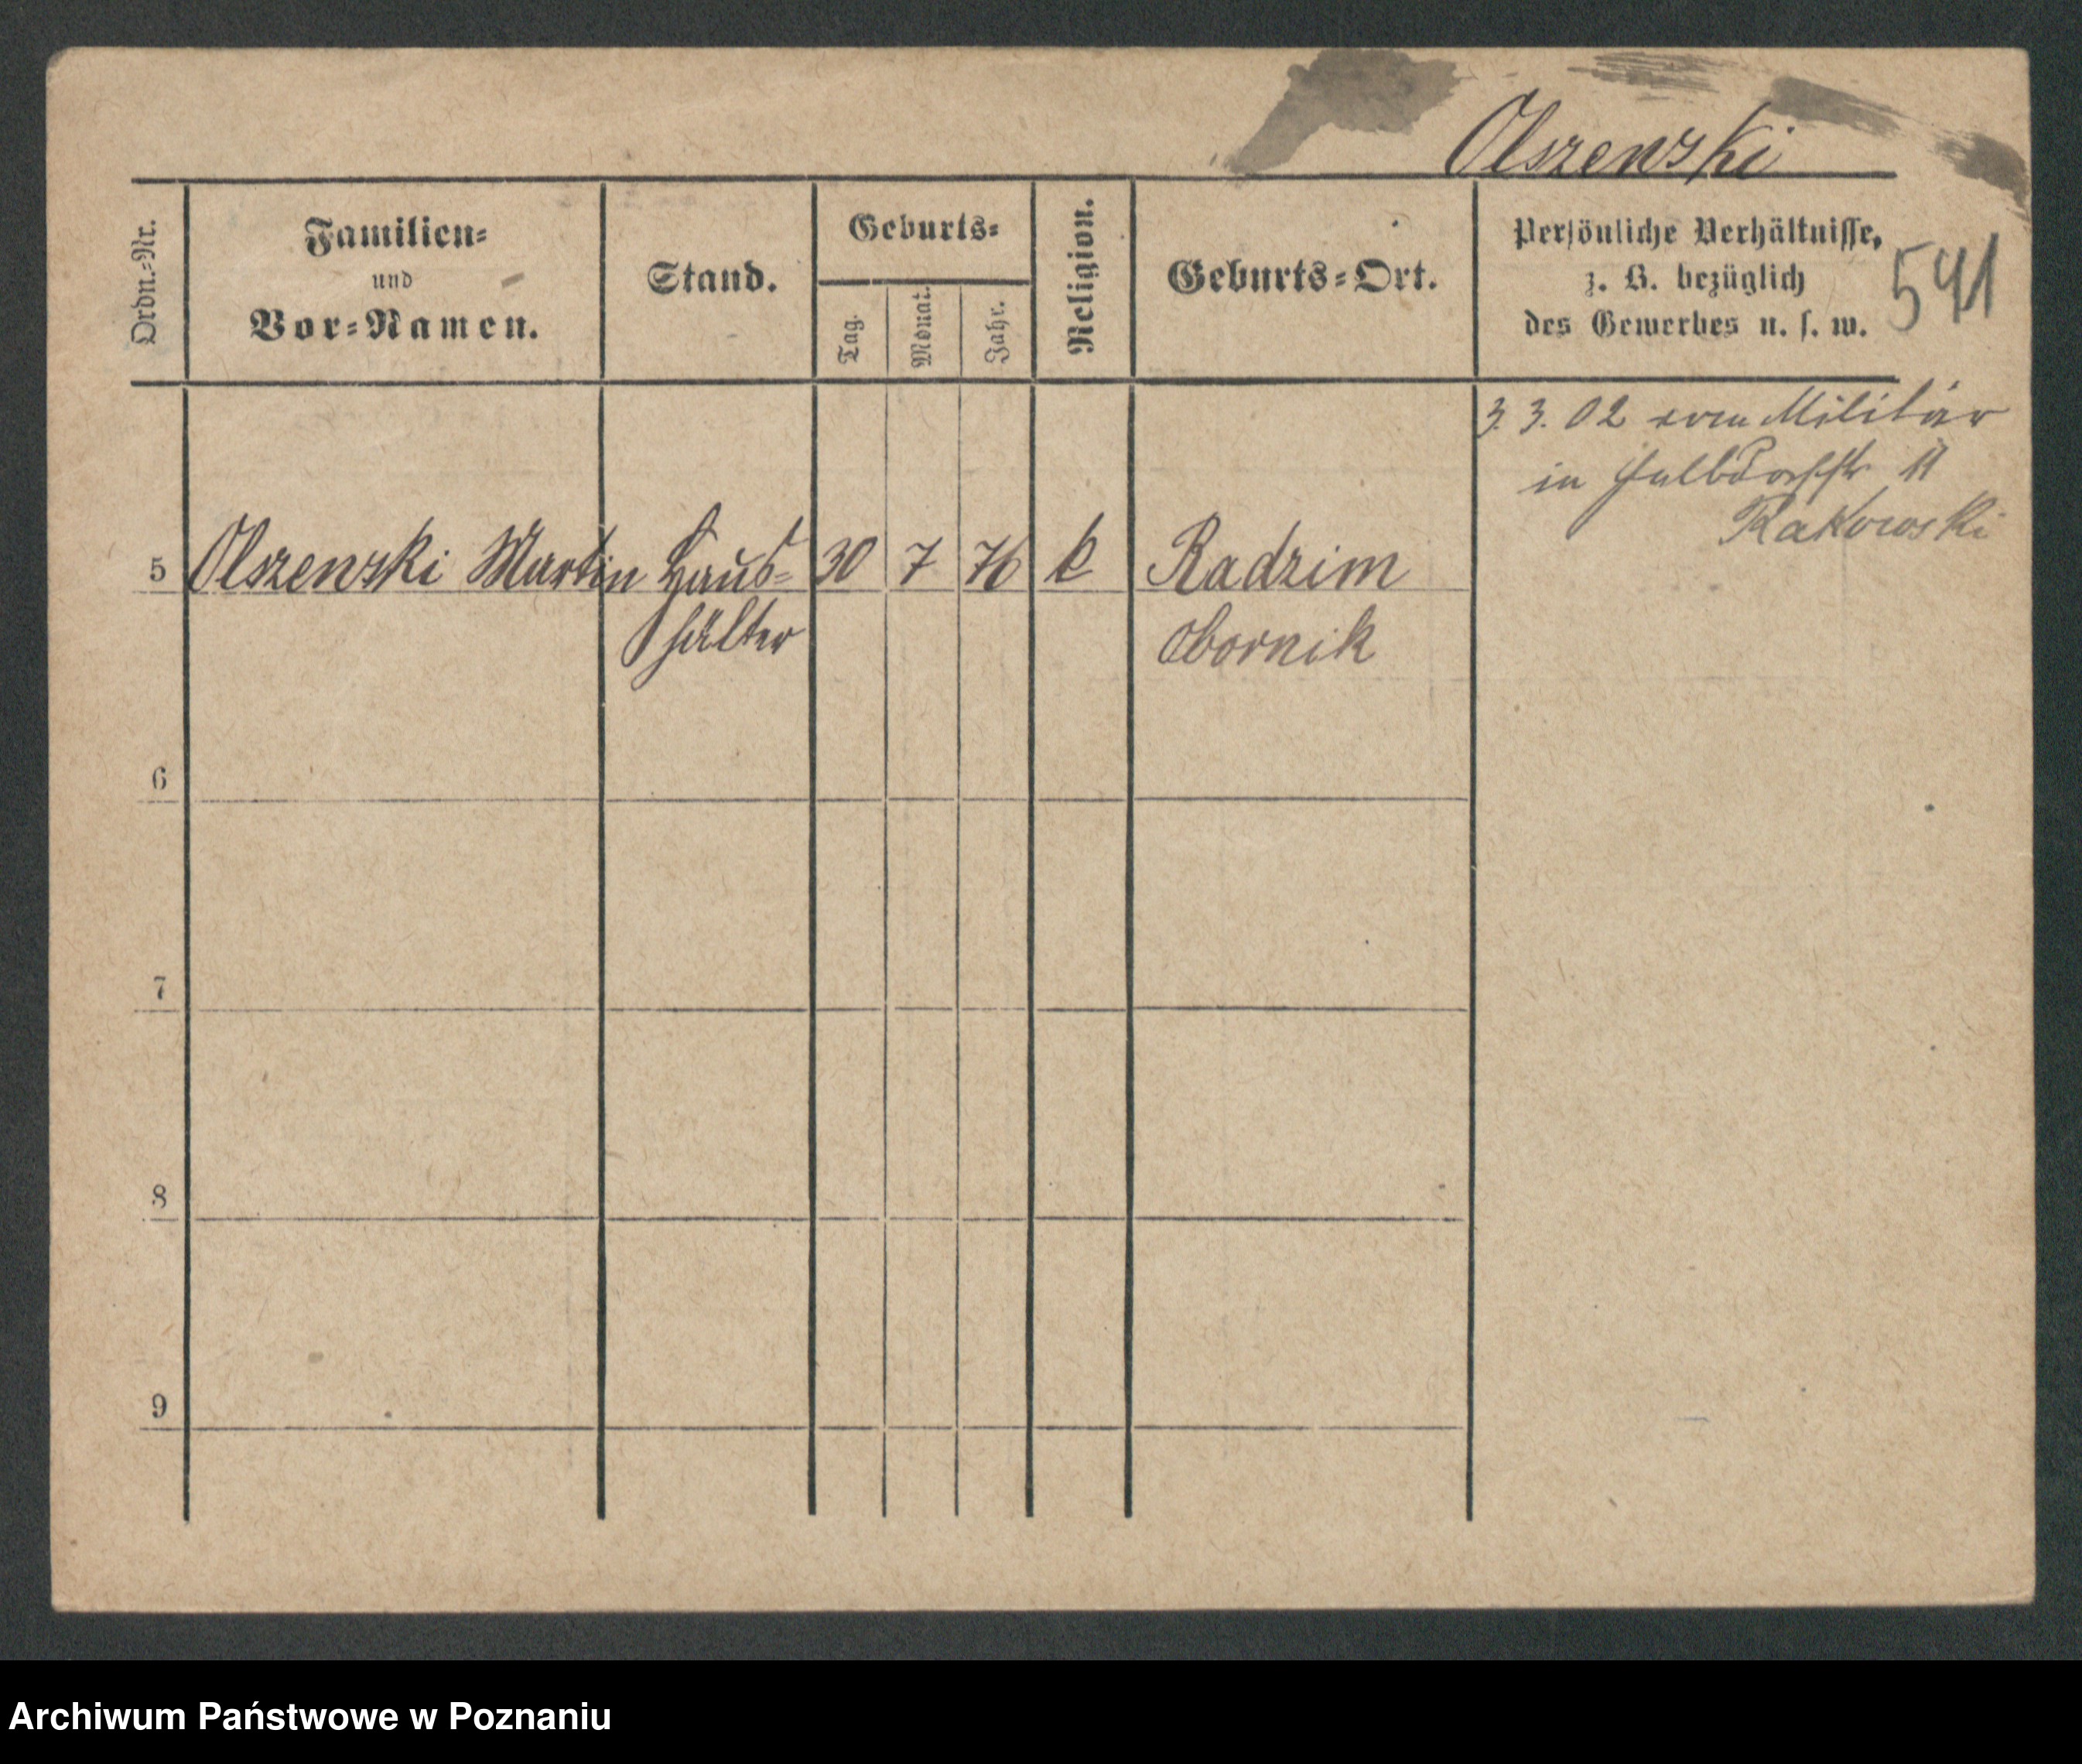 Olszewski
Ordn.=Nr.
Familien=
und
Vor=Namen.
Stand.
Geburts=
Tag.
Monat.
Jahr.
Religion.
Geburts=Ort.
Persönliche Verhältnisse,
z. B. bezüglich
des Gewerbes u. s. w.
541
3. 3. 02 vom Militär
in Halbdorfstr 11
Rakowski
5 Olszewski Martin Haus= 30 7 76 k Radzim
hälter Obornik
6
7
8
9
Archiwum Państwowe w Poznaniu